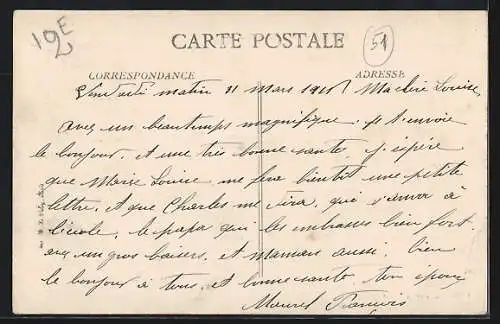 19E
2
CARTE POSTALE
51
CORRESPONDANCE
ADRESSE
Vendredi matin 11 mars 1910 Ma chère Louise,
avec un beau temps magnifique je t'envoie
le bonjour. et une très bonne santé. j'espère
que Marie Louise me fera bientôt une petite
lettre. et que Charles me dira, qui s'amor à
l'école, le papa qui les embrasses bien fort
avec un gros baisers, et maman aussi. bien
le bonjour à tous, et bonne santé. ton époux
Maurel François